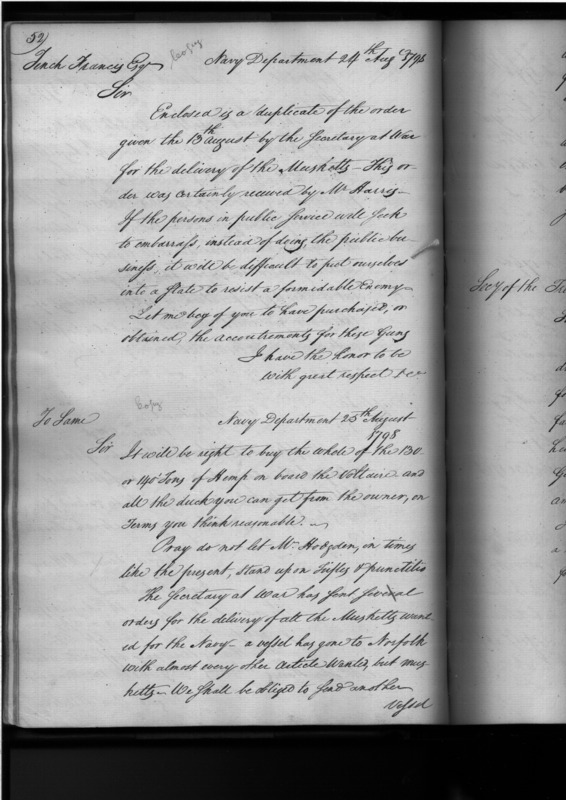 52
Copy
Tench Francis Esqr Navy Department 24th Aug 1798
Sir
Enclosed is a duplicate of the order
given the 13th august by the Secretary at War
for the delivery of the Musketts – This or-
der was certainly received by Mr Harris –
If the persons in public Service will seek
to embarrass, instead of doing the public bu-
siness, it will be difficult to put ourselves
into a State to resist a formidable Enemy –
Let me beg of you to have purchased, or
obtained, the accoutrements for these Guns
I have the honor to be
with great respect &c
Copy
To Same Navy Department 25th August
1798
Sir It will be right to buy the whole of the 130
or 140 Tons of Hemp on board the Voltaire and
all the duck you can get from the owner, on
Terms you think reasonable. –
Pray do not let Mr Hodgdon, in times
like the present, stand upon Trifles & punctilio
The Secretary at War has sent several
orders for the delivery of all the Musketts want-
ed for the Navy – a vessel has gone to Norfolk
with almost every other article wanted, but mus-
ketts – We shall be obliged to send another
Vessel
Secy of the